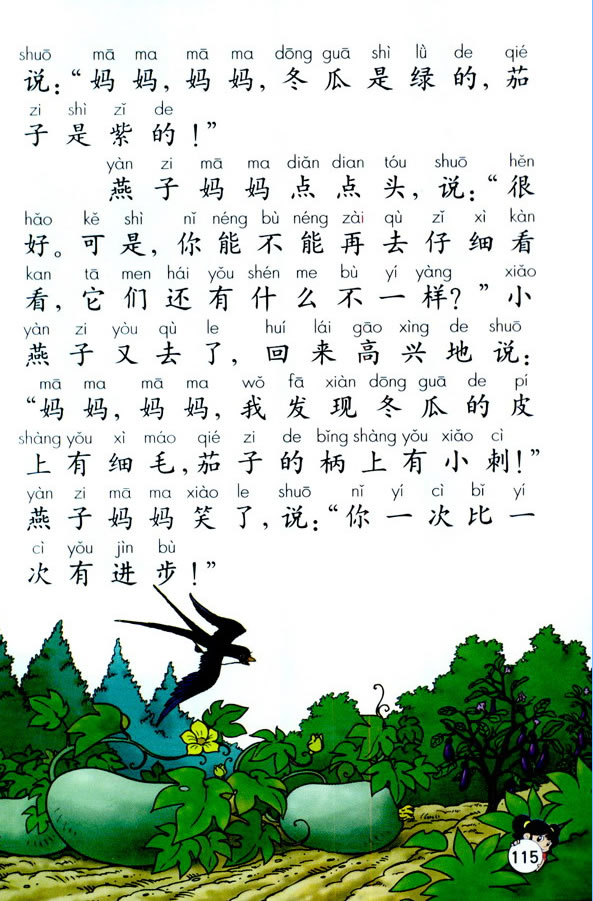 shuō mā ma mā ma dōng guā shì lǜ de qié
说：“妈妈，妈妈，冬瓜是绿的，茄
zi shì zǐ de
子是紫的！”
yàn zi mā ma diǎn dian tóu shuō hěn
燕子妈妈点点头，说：“很
hǎo kě shì nǐ néng bù néng zài qù zǐ xì kàn
好。可是，你能不能再去仔细看
kan tā men hái yǒu shén me bù yí yàng xiǎo
看，它们还有什么不一样？”小
yàn zi yòu qù le huí lái gāo xìng de shuō
燕子又去了，回来高兴地说：
mā ma mā ma wǒ fā xiàn dōng guā de pí
“妈妈，妈妈，我发现冬瓜的皮
shàng yǒu xì máo qié zi de bǐng shàng yǒu xiǎo cì
上有细毛，茄子的柄上有小刺！”
yàn zi mā ma xiào le shuō nǐ yí cì bǐ yí
燕子妈妈笑了，说：“你一次比一
cì yǒu jìn bù
次有进步！”
115